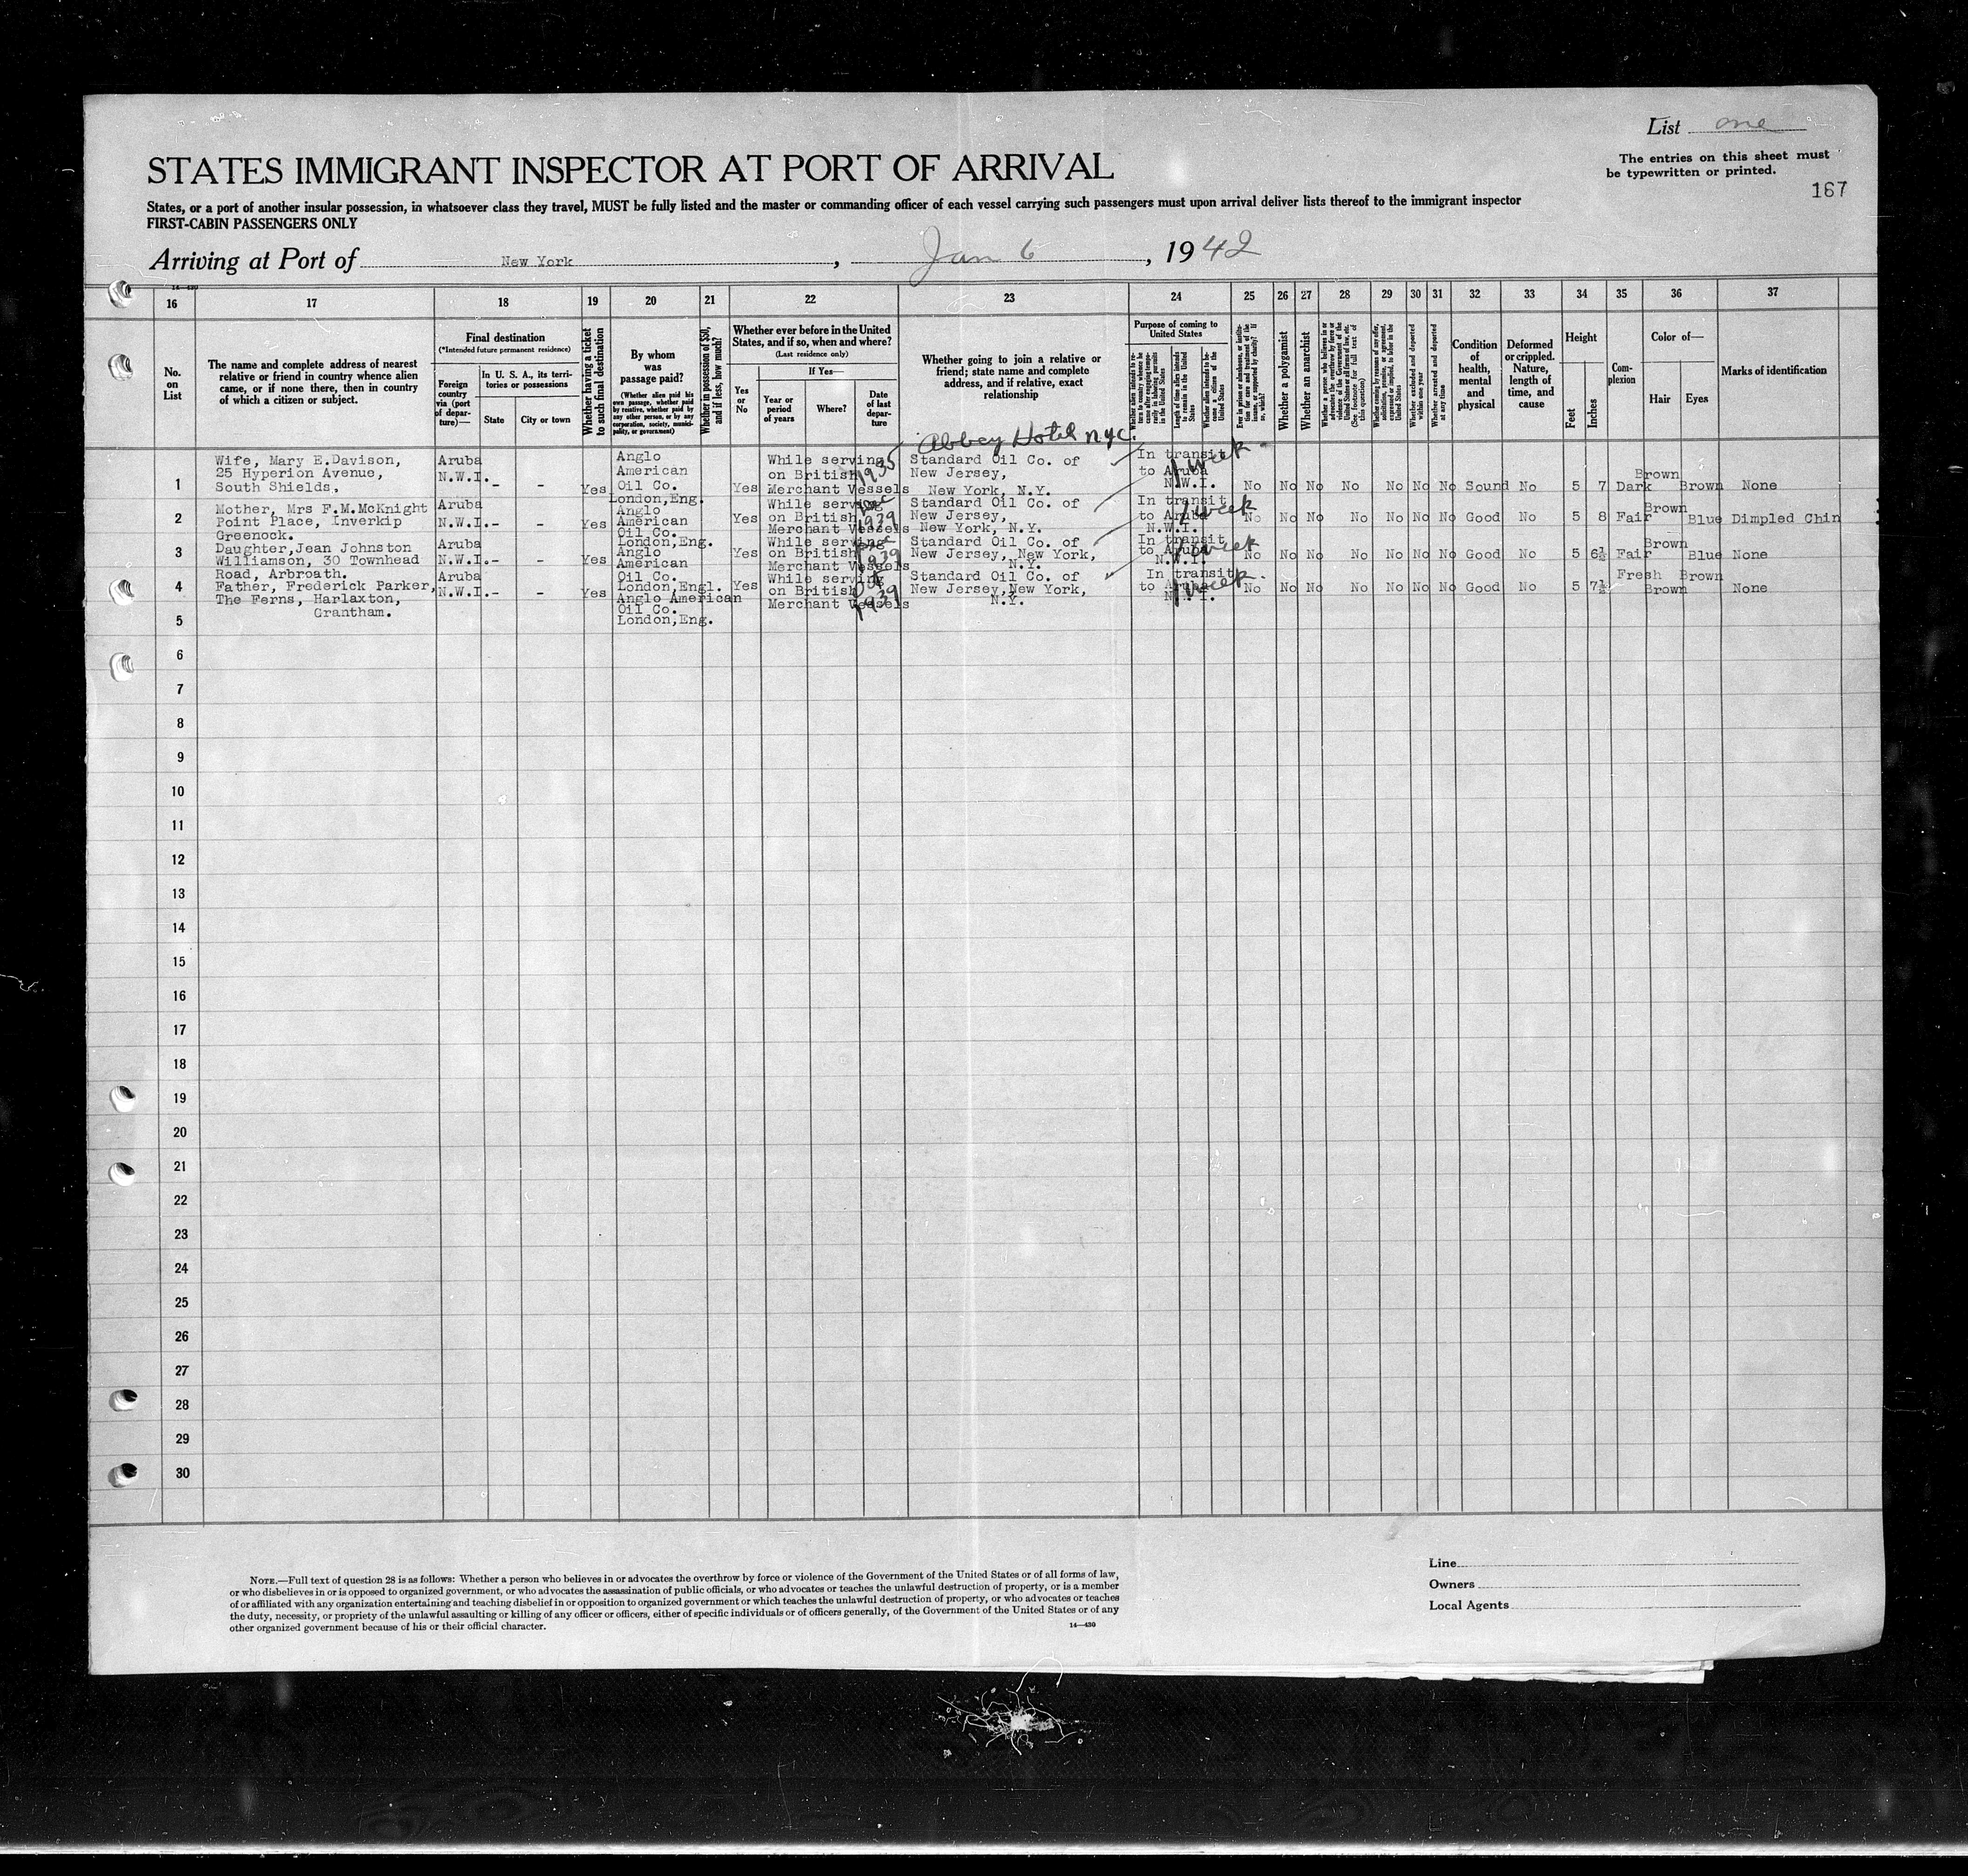 List one
The entries on this sheet must
be typewritten or printed.
167
STATES IMMIGRANT INSPECTOR AT PORT OF ARRIVAL
States, or a port of another insular possession, in whatsoever class they travel, MUST be fully listed and the master or commanding officer of each vessel carrying such passengers must upon arrival deliver lists thereof to the immigrant inspector
FIRST-CABIN PASSENGERS ONLY
Arriving at Port of New York, Jan 6, 1942
16 17 18 19 20 21 22 23 24 25 26 27 28 29 30 31 32 33 34 35 36 37
No.
on
List
The name and complete address of nearest
relative or friend in country whence alien
came, or if none there, then in country
of which a citizen or subject.
Final destination
(*Intended future permanent residence)
Foreign
country
via (port
of depar-
ture)—
In U. S. A., its terri-
tories or possessions
State
City or town
Whether having a ticket
to such final destination
By whom
was
passage paid?
(Whether alien paid his
own passage, whether paid
by relative, whether paid by
any other person, or by any
corporation, society, munici-
pality, or government)
Whether in possession of $50,
and if less, how much?
Whether ever before in the United
States, and if so, when and where?
(Last residence only)
Yes
or
No
If Yes—
Year or
period
of years
Where?
Date
of last
depar-
ture
Whether going to join a relative or
friend; state name and complete
address, and if relative, exact
relationship
Purpose of coming to
United States
Length of time alien intends
to remain in the United
States
Whether alien intends to be-
come a citizen of the
United States
Whether a polygamist
Whether an anarchist
Whether excluded and deported
within one year
Whether arrested and deported
at any time
Condition
of
health,
mental
and
physical
Deformed
or crippled.
Nature,
length of
time, and
cause
Height
Feet
Inches
Com-
plexion
Color of—
Hair
Eyes
Marks of identification
Abbey Hotel nyc.
1
Wife, Mary E.Davison,
25 Hyperion Avenue,
South Shields,
Aruba
N.W.I. - - Yes
Anglo
American
Oil Co.
London,Eng.
Yes
While serving
on British
Merchant Vessels
1935
Standard Oil Co. of
New Jersey,
New York, N.Y.
In transit
to Aruba
N.W.I.
1 week
No No No No No No No Sound No 5 7 Dark Brown Brown None
2
Mother, Mrs F.M.McKnight
Point Place, Inverkip
Greenock.
Aruba
N.W.I.- - Yes
Anglo
American
Oil Co.
London,Eng.
Yes
While serving
on British
Merchant Vessels
1939
Standard Oil Co. of
New Jersey,
New York, N.Y.
In transit
to Aruba
N.W.I.
1 week
No No No No No No No Good No 5 8 Fair Brown Blue Dimpled Chin
3
Daughter,Jean Johnston
Williamson, 30 Townhead
Road, Arbroath.
Aruba
N.W.I.- - Yes
Anglo
American
Oil Co.
London,Engl.
Yes
While serving
on British
Merchant Vessels
1939
Standard Oil Co. of
New Jersey, New York,
N.Y.
In transit
to Aruba
N.W.I.
1 week
No No No No No No No Good No 5 6½ Fair Brown Blue None
4
Father, Frederick Parker,
The Ferns, Harlaxton,
Grantham.
Aruba
N.W.I.- - Yes
Anglo American
Oil Co.
London,Eng.
Yes
While serving
on British
Merchant Vessels
1939
Standard Oil Co. of
New Jersey,New York,
N.Y.
In transit
to Aruba
N.W.I.
1 week.
No No No No No No No Good No 5 7½ Fresh Brown Brown None
5
6
7
8
9
10
11
12
13
14
15
16
17
18
19
20
21
22
23
24
25
26
27
28
29
30
NOTE.—Full text of question 28 is as follows: Whether a person who believes in or advocates the overthrow by force or violence of the Government of the United States or of all forms of law,
or who disbelieves in or is opposed to organized government, or who advocates the assassination of public officials, or who advocates or teaches the unlawful destruction of property, or is a member
of or affiliated with any organization entertaining and teaching disbelief in or opposition to organized government or which teaches the unlawful destruction of property, or who advocates or teaches
the duty, necessity, or propriety of the unlawful assaulting or killing of any officer or officers, either of specific individuals or of officers generally, of the Government of the United States or of any
other organized government because of his or their official character.
14—430
Line
Owners
Local Agents